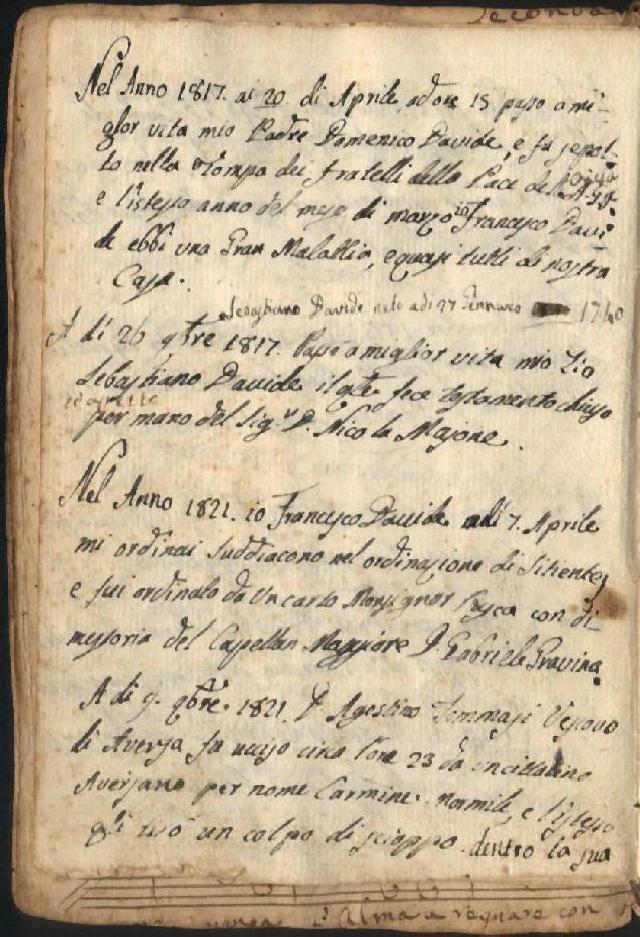 Nel Anno 1817. ai 20. di Aprile ad ore 15 passò a mi-
glor vita mio Padre Domenico Davide, e fù sepol-
to nella Tompa dei fratelli della Pace del
e l'istesso anno del mese di marzo io Francesco Davi-
de ebbi una Gran Malattia, e quasi tutti di nostra
Casa.
Sebastiano Davide nato a di 27 Gennaro 1740
A di 26 9bre 1817. Passò a miglior vita mio Zio
Sebastiano Davide il qle fece testamento chiuso
per mano del Sig.r D. Nicola Majone.
Nel Anno 1821. io Francesco Davide alli 7. Aprile
mi ordinai Suddiacono nel ordinazione di Sitientes
e fui ordinato da un certo Monsignor con di-
messoria del Capellan Maggiore D. Gabriele Gravina.
A di 9. 9bre. 1821. D. Agostino Tommasi Vescovo
di Aversa fu ucciso circa l'ore 23 da un cittadino
Aversano per nome Carmine Mormile, e l'istesso
gli tirò un colpo di scioppo dentro la sua
l'Alma a regnare con